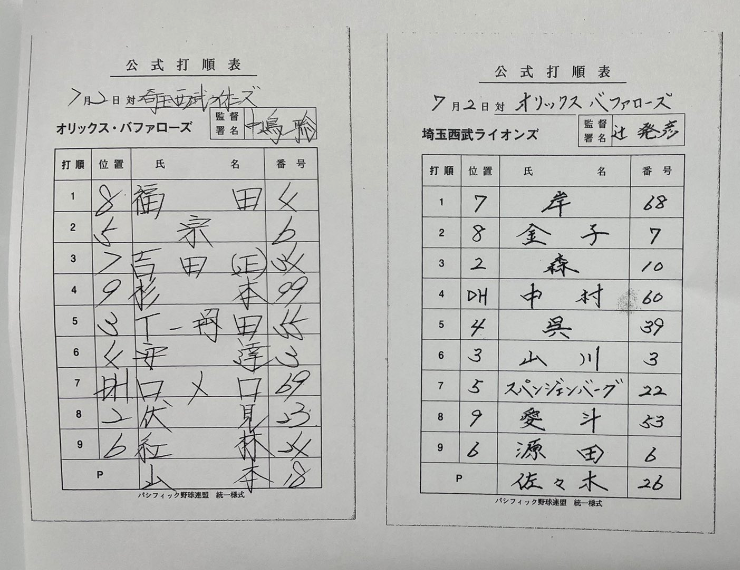 公式打順表
7月2日 対 埼玉西武ライオンズ
オリックス・バファローズ 監督署名 中嶋聡
打順 位置 氏名 番号
1 8 福田 4
2 5 宗 6
3 7 吉田(正) 34
4 9 杉本 99
5 3 T-岡田 55
6 4 安達 3
7 DH ロメロ 69
8 2 伏見 23
9 6 紅林 24
P 山本 18
パシフィック野球連盟 統一様式
公式打順表
7月2日 対 オリックスバファローズ
埼玉西武ライオンズ 監督署名 辻発彦
打順 位置 氏名 番号
1 7 岸 68
2 8 金子 7
3 2 森 10
4 DH 中村 60
5 4 呉 39
6 3 山川 3
7 5 スパンジェンバーグ 22
8 9 愛斗 53
9 6 源田 6
P 佐々木 26
パシフィック野球連盟 統一様式